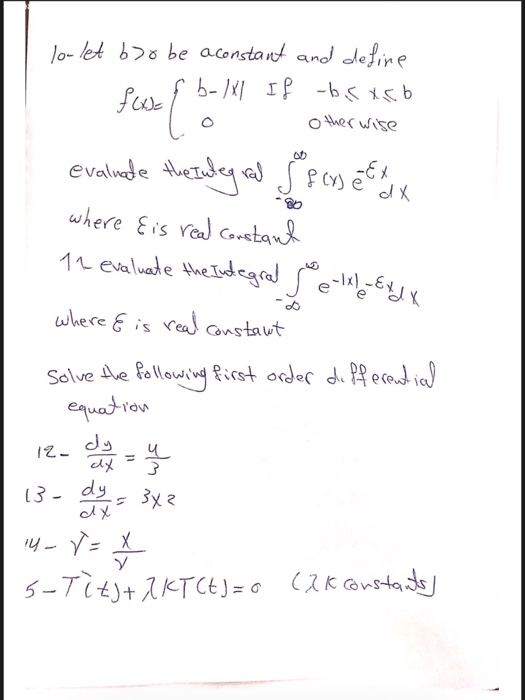 10- let b>0 be a constant and define
f(x)= { b-|x| If -b ≤ x ≤ b
0 otherwise
evaluate the Integral ∫_{-∞}^{∞} f(x) e^{-εx} dx
where ε is real constant
11 evaluate the Integral ∫_{-∞}^{∞} e^{-|x|} e^{-εx} dx
where ε is real constant
Solve the following first order differential
equation
12- dy/dx = y/3
13- dy/dx = 3x2
14- y' = x/y
5- T'(t)+ λKT(t)=0 (λ K constants)